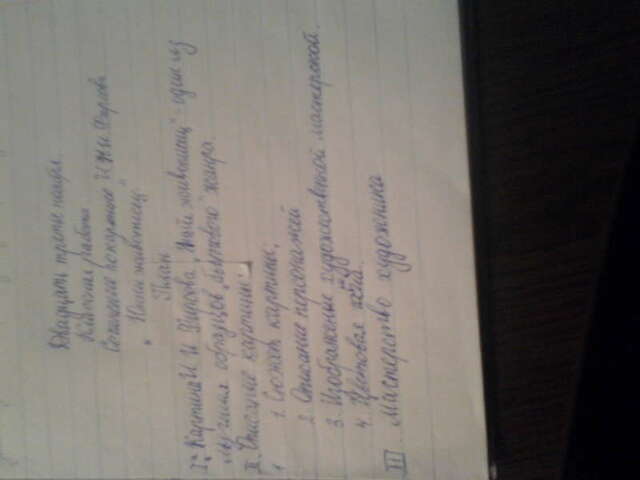 Двадцать третье ноября.
Классная работа.
Сочинение по картине И. И. Фирсова
"Юный живописец"
План
I. Картина И. И. Фирсова "Юный живописец" - один из
лучших образцов "бытового" жанра.
II. Описание картины.
1. Сюжет картины.
2. Описание персонажей
3. Изображение художественной мастерской.
4. Цветовая гамма.
III. Мастерство художника